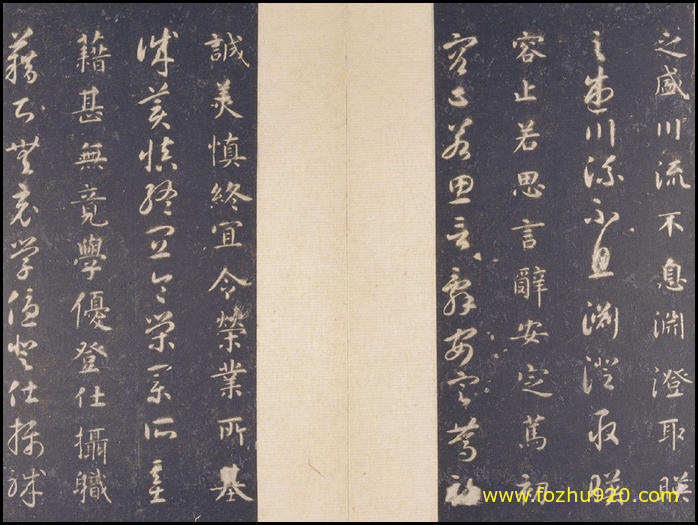 之盛川流不息淵澄取暎
之盛川流不息淵澄取暎
容止若思言辭安定篤初
容止若思言辭安定篤初
誠美慎終宜令榮業所基
誠美慎終宜令榮業所基
藉甚無竟學優登仕攝職
藉甚無竟學優登仕攝職
www.fozhu920.com